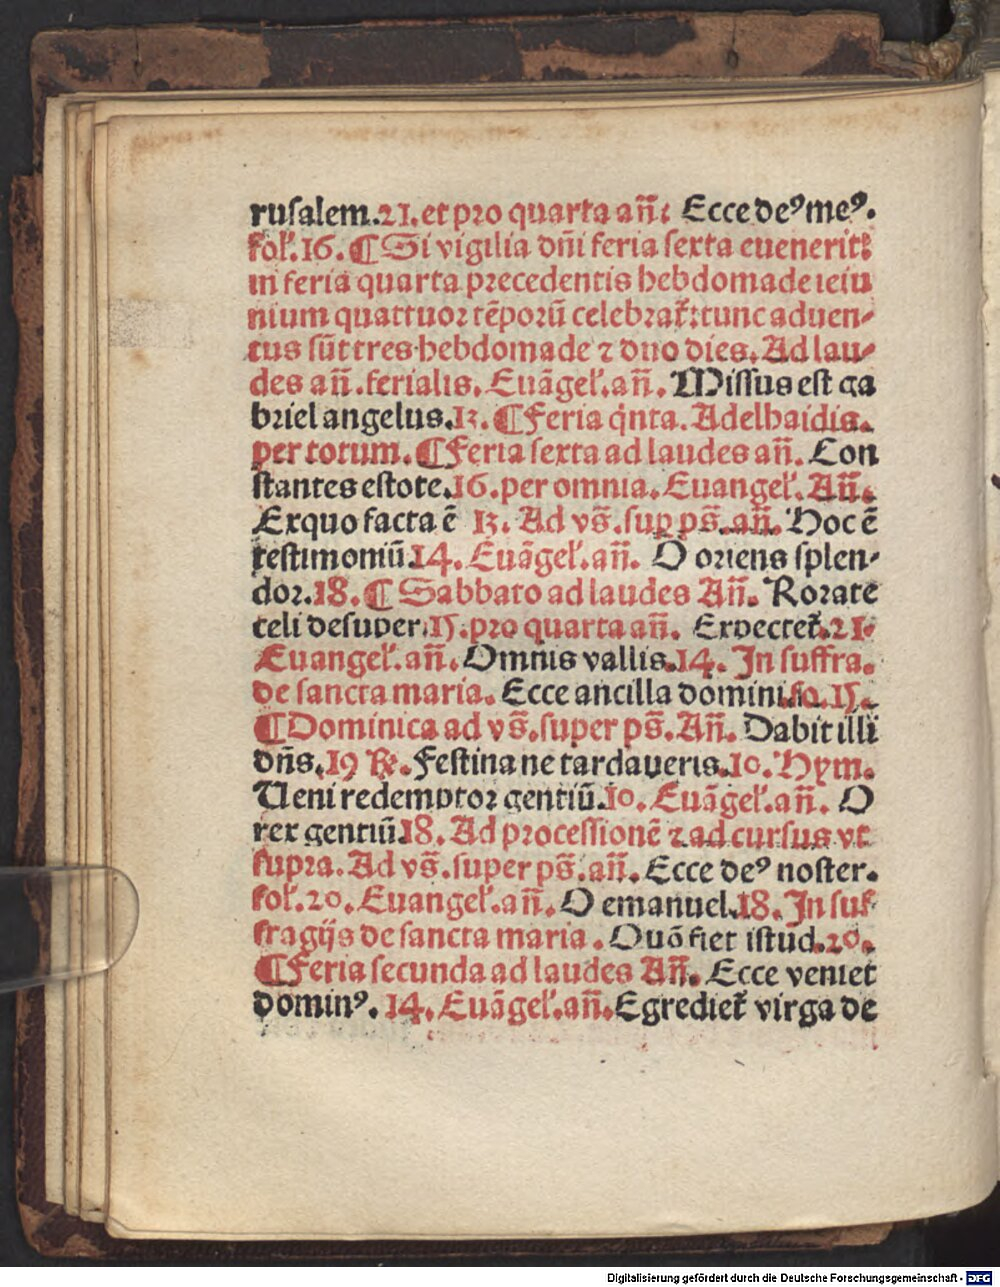 rusalem.21. et pro quarta añ: Ecce deꝰ meꝰ.
fol̕.16. ¶ Si vigilia dñi feria sexta euenerit:
in feria quarta precedentis hebdomade ieiu
nium quattuor tẽporũ celebrat̃: tunc aduen-
tus sũt tres hebdomade ⁊ duo dies. Ad lau-
des añ. ferialis. Euãgel̕. añ. Missus est ga
briel angelus.13. ¶ Feria q̇nta. Adelhaidis.
per totum. ¶ Feria sexta ad laudes añ. Con
stantes estote.16. per omnia. Euangel̕. Añ.
Ex quo facta ẽ 13. Ad vs̃. sup ps̃. añ. Hoc ẽ
testimoniũ.14. Euãgel̕. añ. O oriens splen-
dor.18. ¶ Sabbato ad laudes Añ. Rorate
celi desuper.15. pro quarta añ. Expectet̃.21.
Euangel̕. añ. Omnis vallis.14. In suffra.
de sancta maria. Ecce ancilla domini.fo.15.
¶ Dominica ad vs̃. super ps̃. Añ. Dabit illi
dñs.19 ℞. Festina ne tardaueris.10. Hym.
Ueni redemptor gentiũ.10. Euãgel̕. añ. O
rex gentiũ.18. Ad processionẽ ⁊ ad cursus vt
supra. Ad vs̃. super ps̃. añ. Ecce deꝰ noster.
fol̕.20. Euangel̕. añ. O emanuel.18. In suf
fragijs de sancta maria. Quõ fiet istud.20.
¶ Feria secunda ad laudes Añ. Ecce veniet
dominꝰ. 14. Euãgel̕. añ. Egrediet̃ virga de
Digitalisierung gefördert durch die Deutsche Forschungsgemeinschaft - DFG